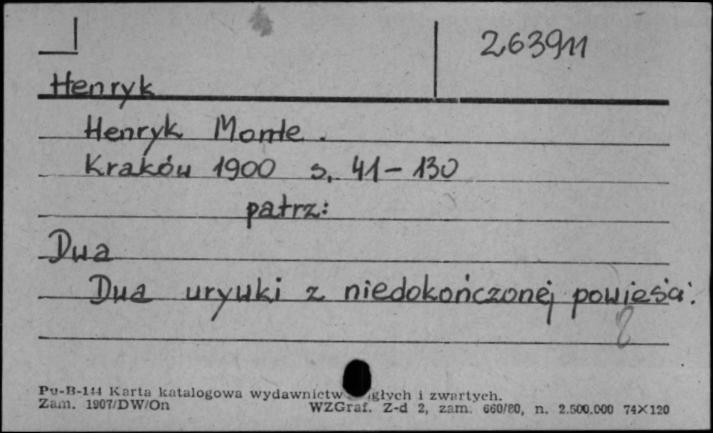 263911
Henryk
Henryk Monte.
Kraków 1900 s. 41-130
patrz:
Dwa
Dwa urywki z niedokończonej powieści.
Pu-B-144 Karta katalogowa wydawnictw głych i zwartych.
Zam. 1907/DW/On WZGraf. Z-d 2, zam. 660/80, n. 2.500.000 74×120